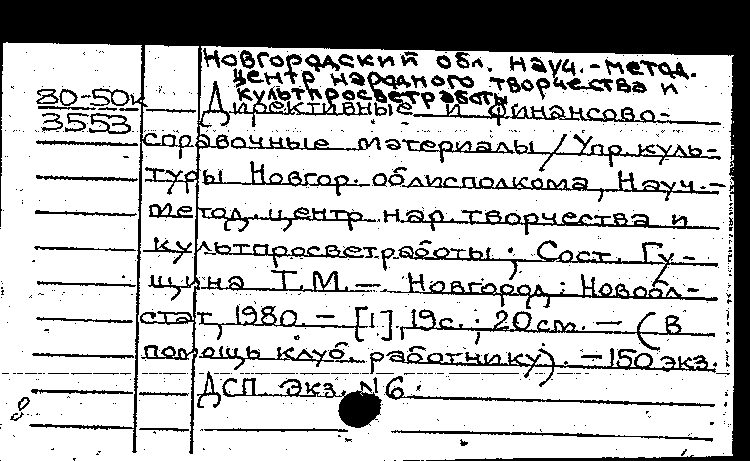 Новгородский обл. науч.-метод.
центр народного творчества и
культпросветработы
80-50к
3553
Директивные и финансово-
справочные материалы / Упр. куль-
туры Новгор. облисполкома, Науч.-
метод. центр нар. творчества и
культпросветработы ; Сост. Гу-
щина Т.М. — Новгород : Новобл-
стат, 1980. — [1], 19с. ; 20 см. — (В
помощь клуб. работнику). — 150 экз.
ДСП Экз. N6.
8